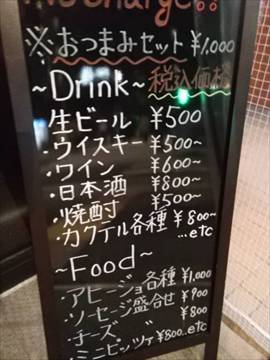 No charge!!
※おつまみセット ¥1,000
~Drink~ 税込価格
生ビール ¥500
・ウイスキー ¥500~
・ワイン ¥600~
・日本酒 ¥800~
・焼酎 ¥500~
・カクテル各種 ¥800~
...etc
~Food~
・アヒージョ各種 ¥1,000
・ソーセージ盛合せ ¥900
・チーズ ¥800
・ミニピッツァ ¥800..etc